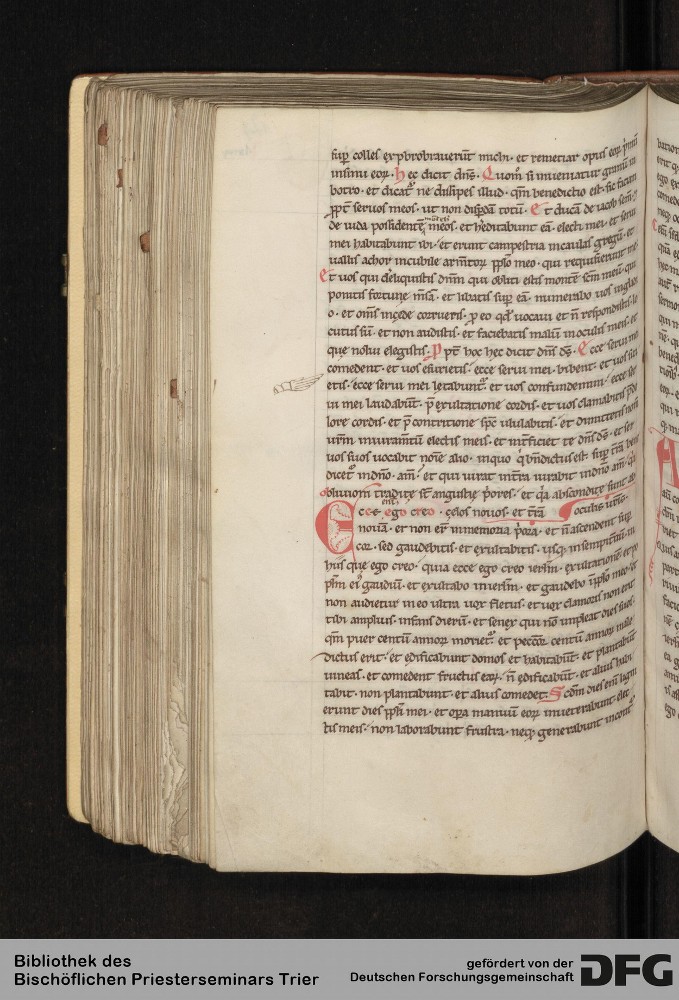 sup̱ colles exp̱brobraverūt michi· et remetiar opus eoꝝ p̓mū
insinu eoꝝ· hec dicit dn̄s· Quom̊ si inveniatur granū in
botro· et dicat᷑ ne dissipes illud· qm̄ benedictio est· sic faciā
ꝓpt̓ servos meos· ut non disp̱dā totū· Et ducā de iacob sem̄
de iuda possidentē meos· et h̓editabunt eā· electi mei· et servi
mei habitabunt ibi· et erunt campestria in caulas gregū· et
vallis achor in cubile armtoꝝ pp̄lo meo· qui requisierunt me·
Et vos qui dereliquistis dnm̄ qui obliti estis montē sc̄m meū· qui
ponitis fortune m̄sā· et libatis sup̱ eā· numerabo vos in gladi
o· et om̄s in cede corruetis· ꝓ eo qd̓ vocavi et n̄ respondistis· lo
cutus sū· et non audistis· et faciebatis malū in oculis meis· et
que nolui elegistis· Ꝓpt̓ hoc hec dicit dn̄s ds̄· Ecce servi mei
comedent· et vos esurietis· ecce servi mei bibent· et vos siti
etis· ecce servi mei letabunt᷑· et vos confundemini· ecce ser
vi mei laudabūt· p̄ exultatione cordis· et vos clamabitis p̄ do
lore cordis· et p̄ contritione sp̄c ululabitis· et dimittetis nom̄
vr̄m in iuramtū electis meis· et int̓ficiet te dn̄s ds̄· et ser
vos suos vocabit noīe alio· in quo q̓ bn̄dictus est sup̱ t̓rā bene
dicet᷑ in dn̄o· am̄· et qui iurat in t̓ra iurabit in dn̄o am̄· q̓a
oblivioni tradite st̄ angustie p̓ores· et q̓a abscondite sunt ab
Ecce enī ego creo· celos novos· et t̓rā oculis n̄ris·
novā· et non er̄t in memoria p̓ora· et n̄ ascendent sup̱
cor· sed gaudebitis et exultabitis· usq; in sempit̓nū· in
his que ego creo· quia ecce ego creo ierl̄m· exultationē· et po
pl̄m ei᷒ gaudiū· et exultabo in ierl̄m· et gaudebo ī pp̄lo meo· et
non audietur in eo ultra vox fletus· et vox clamoris non erit
ibi amplius· infans dierū· et senex qui nō impleat dies suos·
qm̄ puer centū annoꝝ moriet᷑· et peccōr centū annoꝝ male
dictus erit· et edificabunt domos et habitabūt· et plantabūt
vineas· et comedent fructus eaꝝ· n̄ edificabūt· et alius habi
tabit· non plantabunt· et alius comedet· Scdm̄ dies eni lign̄
erunt dies pp̄li mei· et opa manuū eoꝝ inveterabunt· elec
tis meis· non laborabunt frustra· neq; generabunt in cont̓
Bibliothek des
Bischöflichen Priesterseminars Trier
gefördert von der
Deutschen Forschungsgemeinschaft
DFG